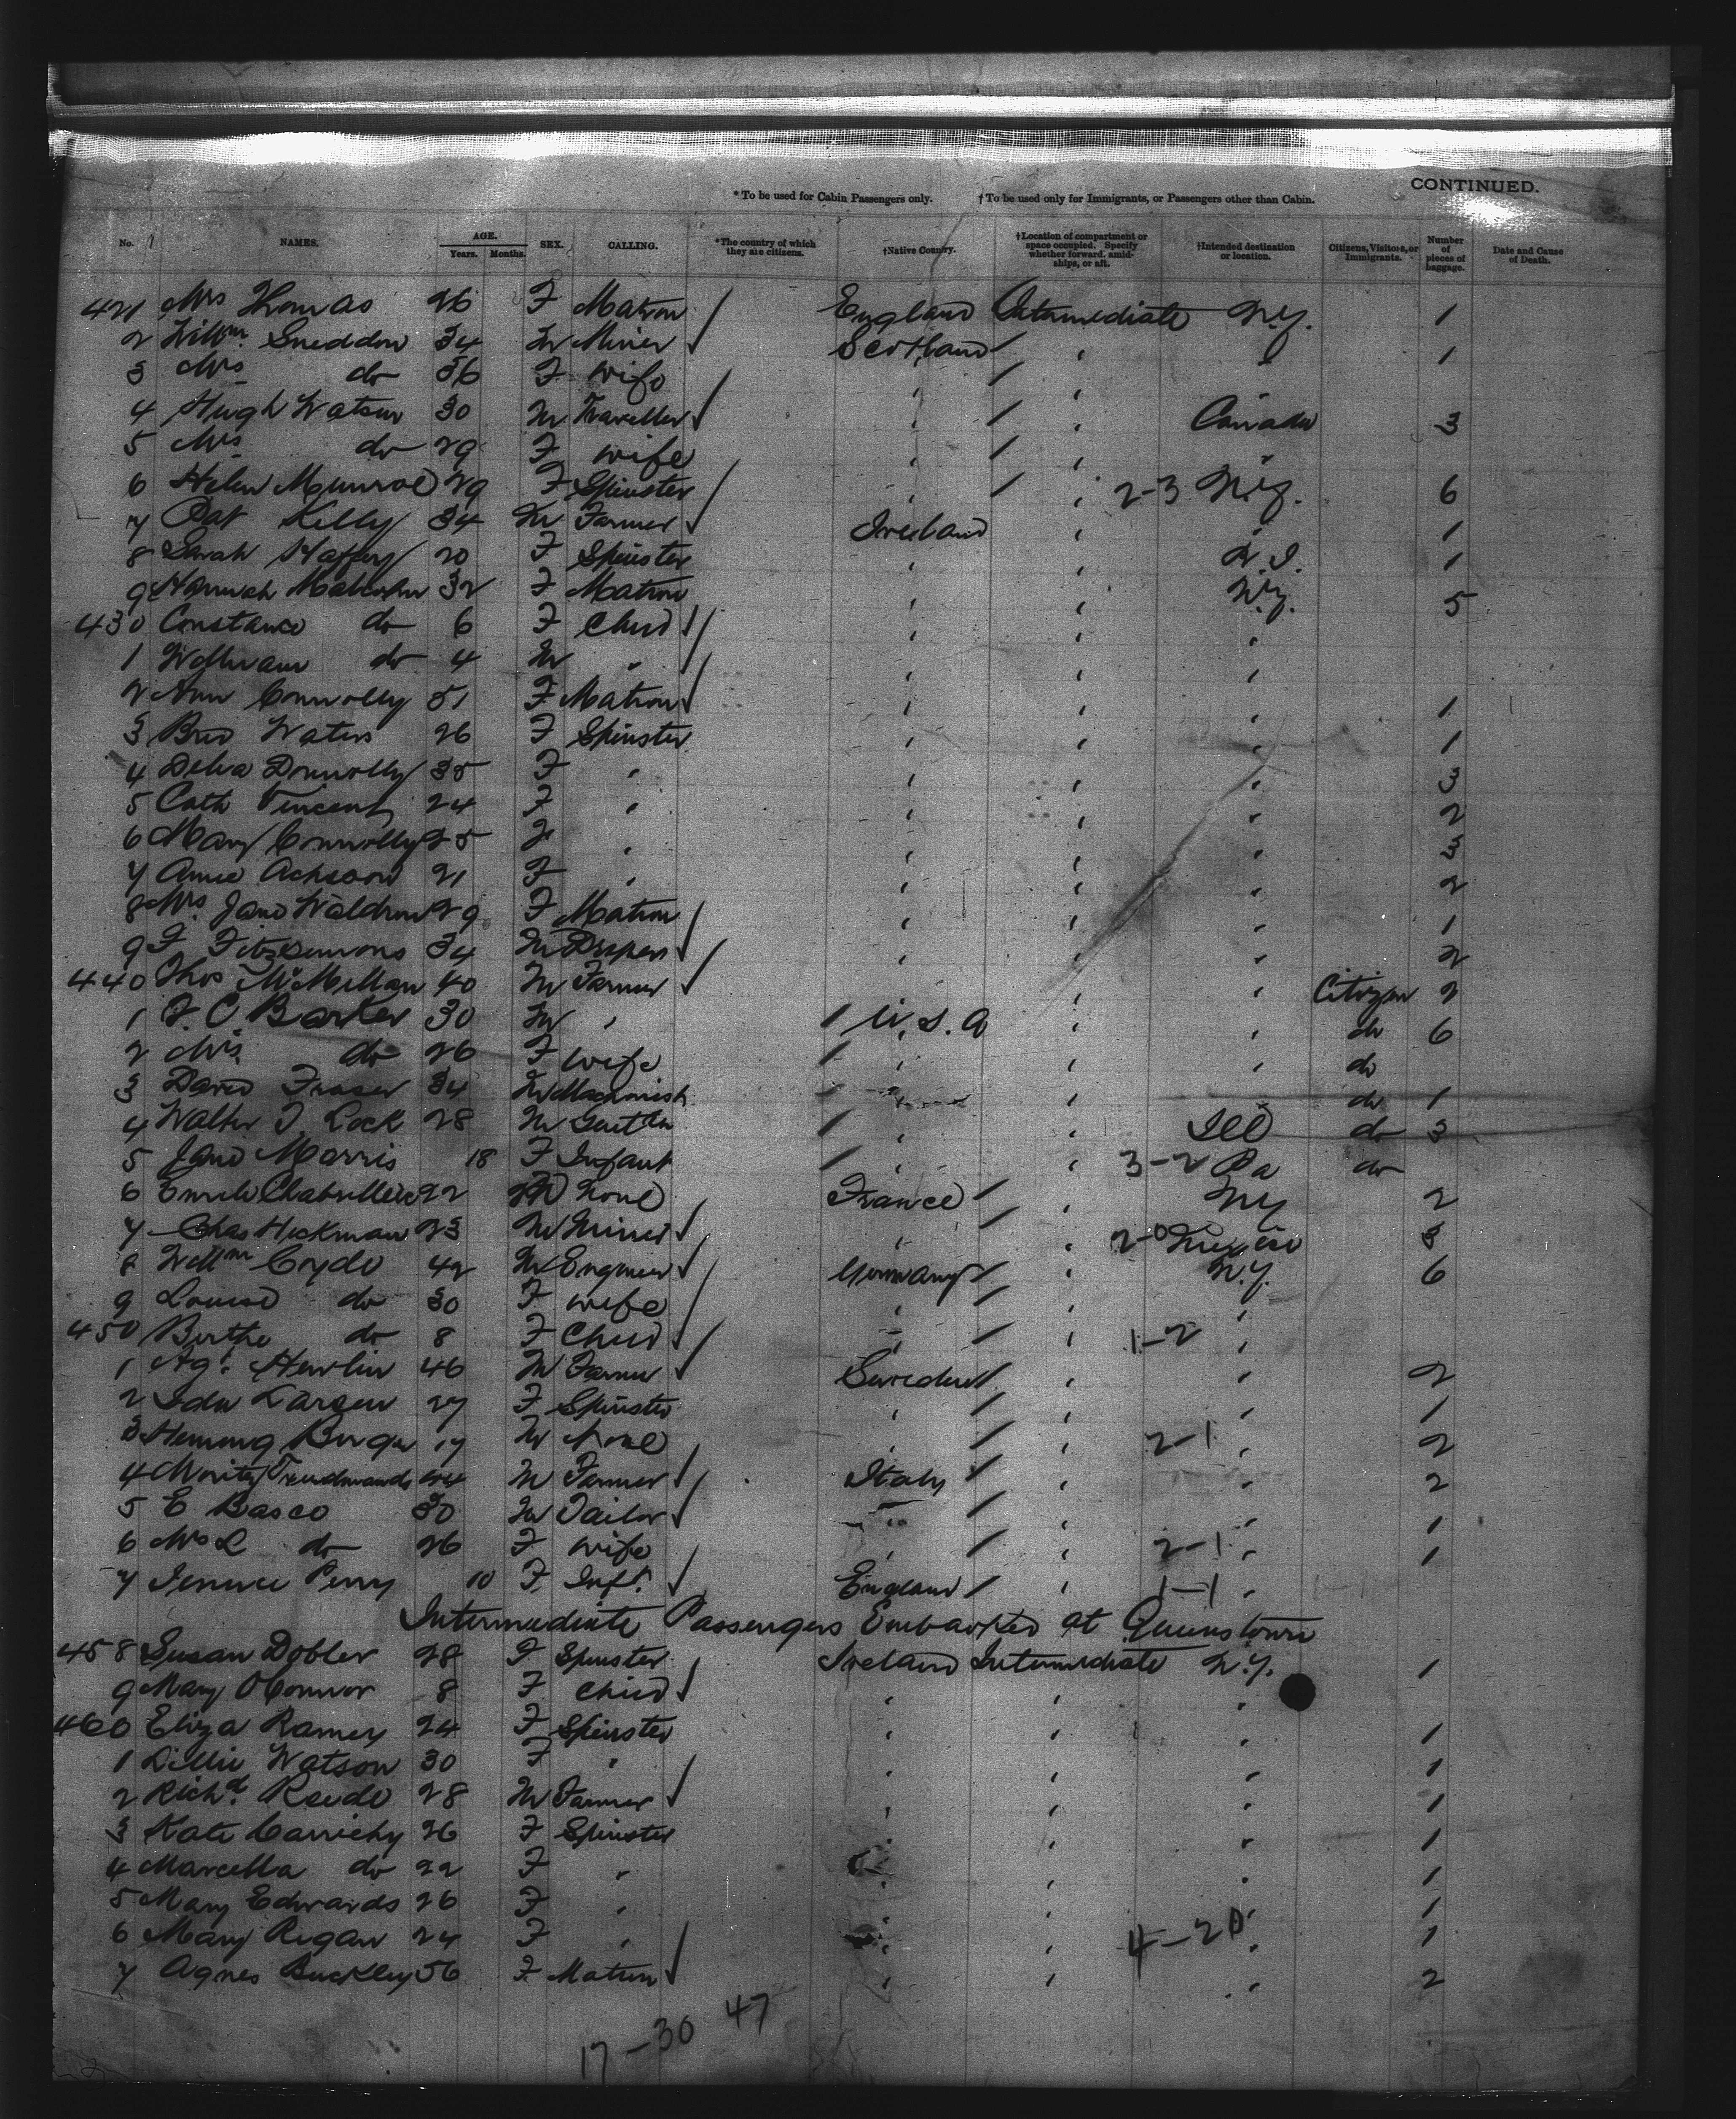 CONTINUED.
* To be used for Cabin Passengers only. † To be used only for Immigrants, or Passengers other than Cabin.
No. NAMES. AGE. Years. Months. SEX. CALLING. *The country of which they are citizens. †Native Country. †Location of compartment or space occupied. Specify whether forward, amidships, or aft. †Intended destination or location. Citizens, Visitors, or Immigrants. Number of pieces of baggage. Date and Cause of Death.
421 Mrs Thomas 26 F Matron England Intermediate N.Y. 1
2 Willm. Sneddon 34 M Miner Scotland " " 1
3 Mrs do 36 F wife " " "
4 Hugh Watson 30 M Traveller " " Canada 3
5 Mrs do 29 F wife " " "
6 Helen Munroe 29 F Spinster " " 2-3 N.Y. 6
7 Pat Kelly 34 M Farmer Ireland " " 1
8 Sarah 20 F Spinster " " R.I. 1
9 Hannah 32 F Matron " " N.Y. 5
430 Constance do 6 F Child " " "
1 do 4 M " " " "
2 Ann Connolly 51 F Matron " " " 1
3 Brid Waters 26 F Spinster " " " 1
4 Delia Donnolly 35 F " " " " 3
5 Cath Vincent 24 F " " " " 2
6 Mary Connolly 25 F " " " " 3
7 Annie Acheson 21 F " " " " 2
8 Mrs Jane Waldron 29 F Matron " " " 1
9 F Fitzsimons 34 M Draper " " " 2
440 Thos McMillan 40 M Farmer " " Citizen 2
1 F. C Barker 30 M " U.S.A " " do 6
2 Mrs do 26 F wife " " " do
3 David Fraser 34 M Machinist " " do 1
4 Walter T. Lock 28 M Gentln " " Ill do 3
5 Jane Morris 18 F Infant " " 3-2 Pa do
6 Emile 22 M None France " NY 2
7 Chas Heckman 23 M Miner " " 2-0 Mexico 3
8 Willm Coyde 42 M Engineer Germany " N.Y. 6
9 Louise do 30 F wife " " "
450 Berthe do 8 F Child " " 1-2 "
1 Ag. Hewlin 46 M Farmer Sweden " " 2
2 Ida Larsen 27 F Spinster " " " 1
3 Henning Berger 17 M None " " 2-1 " 2
4 Moritz 44 M Farmer Italy " " 2
5 E Basco 30 M Tailor " " " 1
6 Mrs L do 26 F wife " " 2-1 " 1
7 Perry 10 F Inft. England " 1-1 "
Intermediate Passengers Embarked at Queenstown
458 Susan Dobler 28 F Spinster Ireland Intermediate N.Y. 1
9 Mary OConnor 8 F Child " " "
460 Eliza Ramey 24 F Spinster " " " 1
1 Lillie Watson 30 F " " " " 1
2 Richd. Reede 28 M Farmer " " " 1
3 Kate 26 F Spinster " " " 1
4 Marcella do 22 F " " " 1
5 Mary Edwards 26 F " " " " 1
6 Mary Regan 24 F " " " 4-20 " 1
7 Agnes Buckley 56 F Matron " " " 2
17-30 47